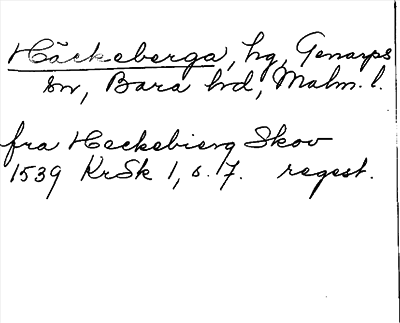 Häckeberga, hg, Genarps
sn, Bara hd, Malm. l.
fra Heckebierg Skov
1539 KrSk 1, s. 17. regest.